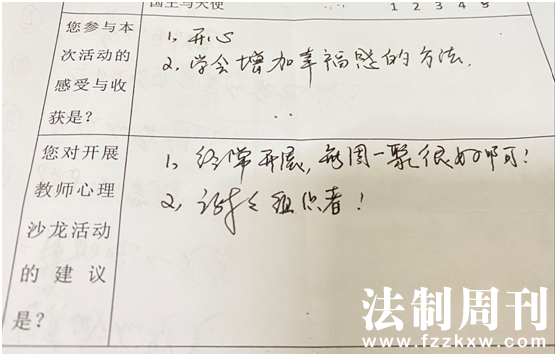 国王与天使
1 2 3 4 5
您参与本
次活动的
感受与收
获是？
1、开心
2、学会增加幸福感的方法.
您对开展
教师心理
沙龙活动
的建议
是？
1、经常开展，每周一聚很好啊！
2、谢谢组织者！
法制周刊
www.fzzkxw.com